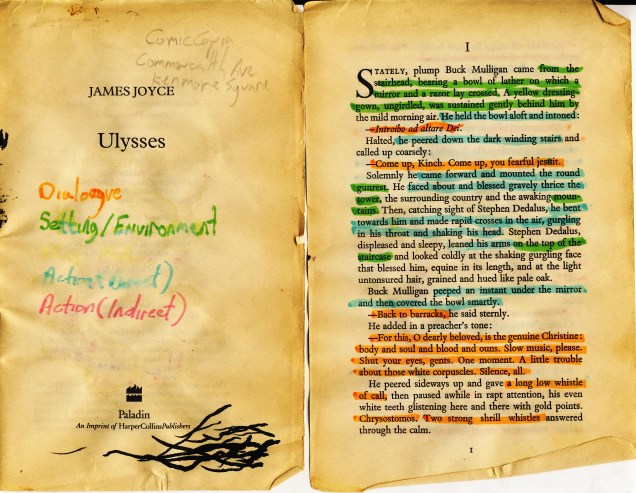 Comic
Commonwealth Ave
Kenmore Square
JAMES JOYCE
Ulysses
Dialogue
Setting/Environment
Action (Direct)
Action (Indirect)
Paladin
An Imprint of HarperCollinsPublishers
I
STATELY, plump Buck Mulligan came from the
stairhead, bearing a bowl of lather on which a
mirror and a razor lay crossed. A yellow dressing-
gown, ungirdled, was sustained gently behind him by
the mild morning air. He held the bowl aloft and intoned:
—Introibo ad altare Dei.
Halted, he peered down the dark winding stairs and
called up coarsely:
—Come up, Kinch. Come up, you fearful jesuit.
Solemnly he came forward and mounted the round
gunrest. He faced about and blessed gravely thrice the
tower, the surrounding country and the awaking moun-
tains. Then, catching sight of Stephen Dedalus, he bent
towards him and made rapid crosses in the air, gurgling
in his throat and shaking his head. Stephen Dedalus,
displeased and sleepy, leaned his arms on the top of the
staircase and looked coldly at the shaking gurgling face
that blessed him, equine in its length, and at the light
untonsured hair, grained and hued like pale oak.
Buck Mulligan peeped an instant under the mirror
and then covered the bowl smartly.
—Back to barracks, he said sternly.
He added in a preacher's tone:
—For this, O dearly beloved, is the genuine Christine:
body and soul and blood and ouns. Slow music, please.
Shut your eyes, gents. One moment. A little trouble
about those white corpuscles. Silence, all.
He peered sideways up and gave a long low whistle
of call, then paused awhile in rapt attention, his even
white teeth glistening here and there with gold points.
Chrysostomos. Two strong shrill whistles answered
through the calm.
I